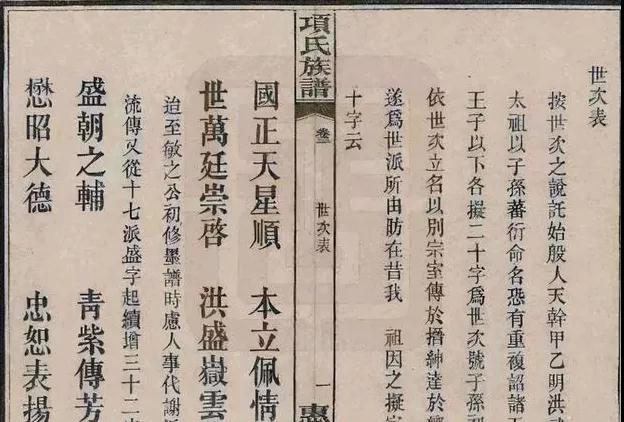 世次表
按世次之說託始殷人天幹甲乙明洪武
太祖以子孫蕃衍命名恐有重複詔諸王
王子以下各擬二十字爲世次號子孫初
依世次立名以別宗室傳於搢紳達於
遂爲世派所由肪在昔我 祖因之擬字
十字云
項氏族譜 卷一 世次表 一 惠
國正天星順 本立佩情
世萬廷崇啓 洪盛嶽雲
迨至敏之公初修墨譜時慮人事代謝
流傳又從十七派盛字起續增三十二
盛朝之輔 青紫傳芳
懋昭大德 忠恕表揚